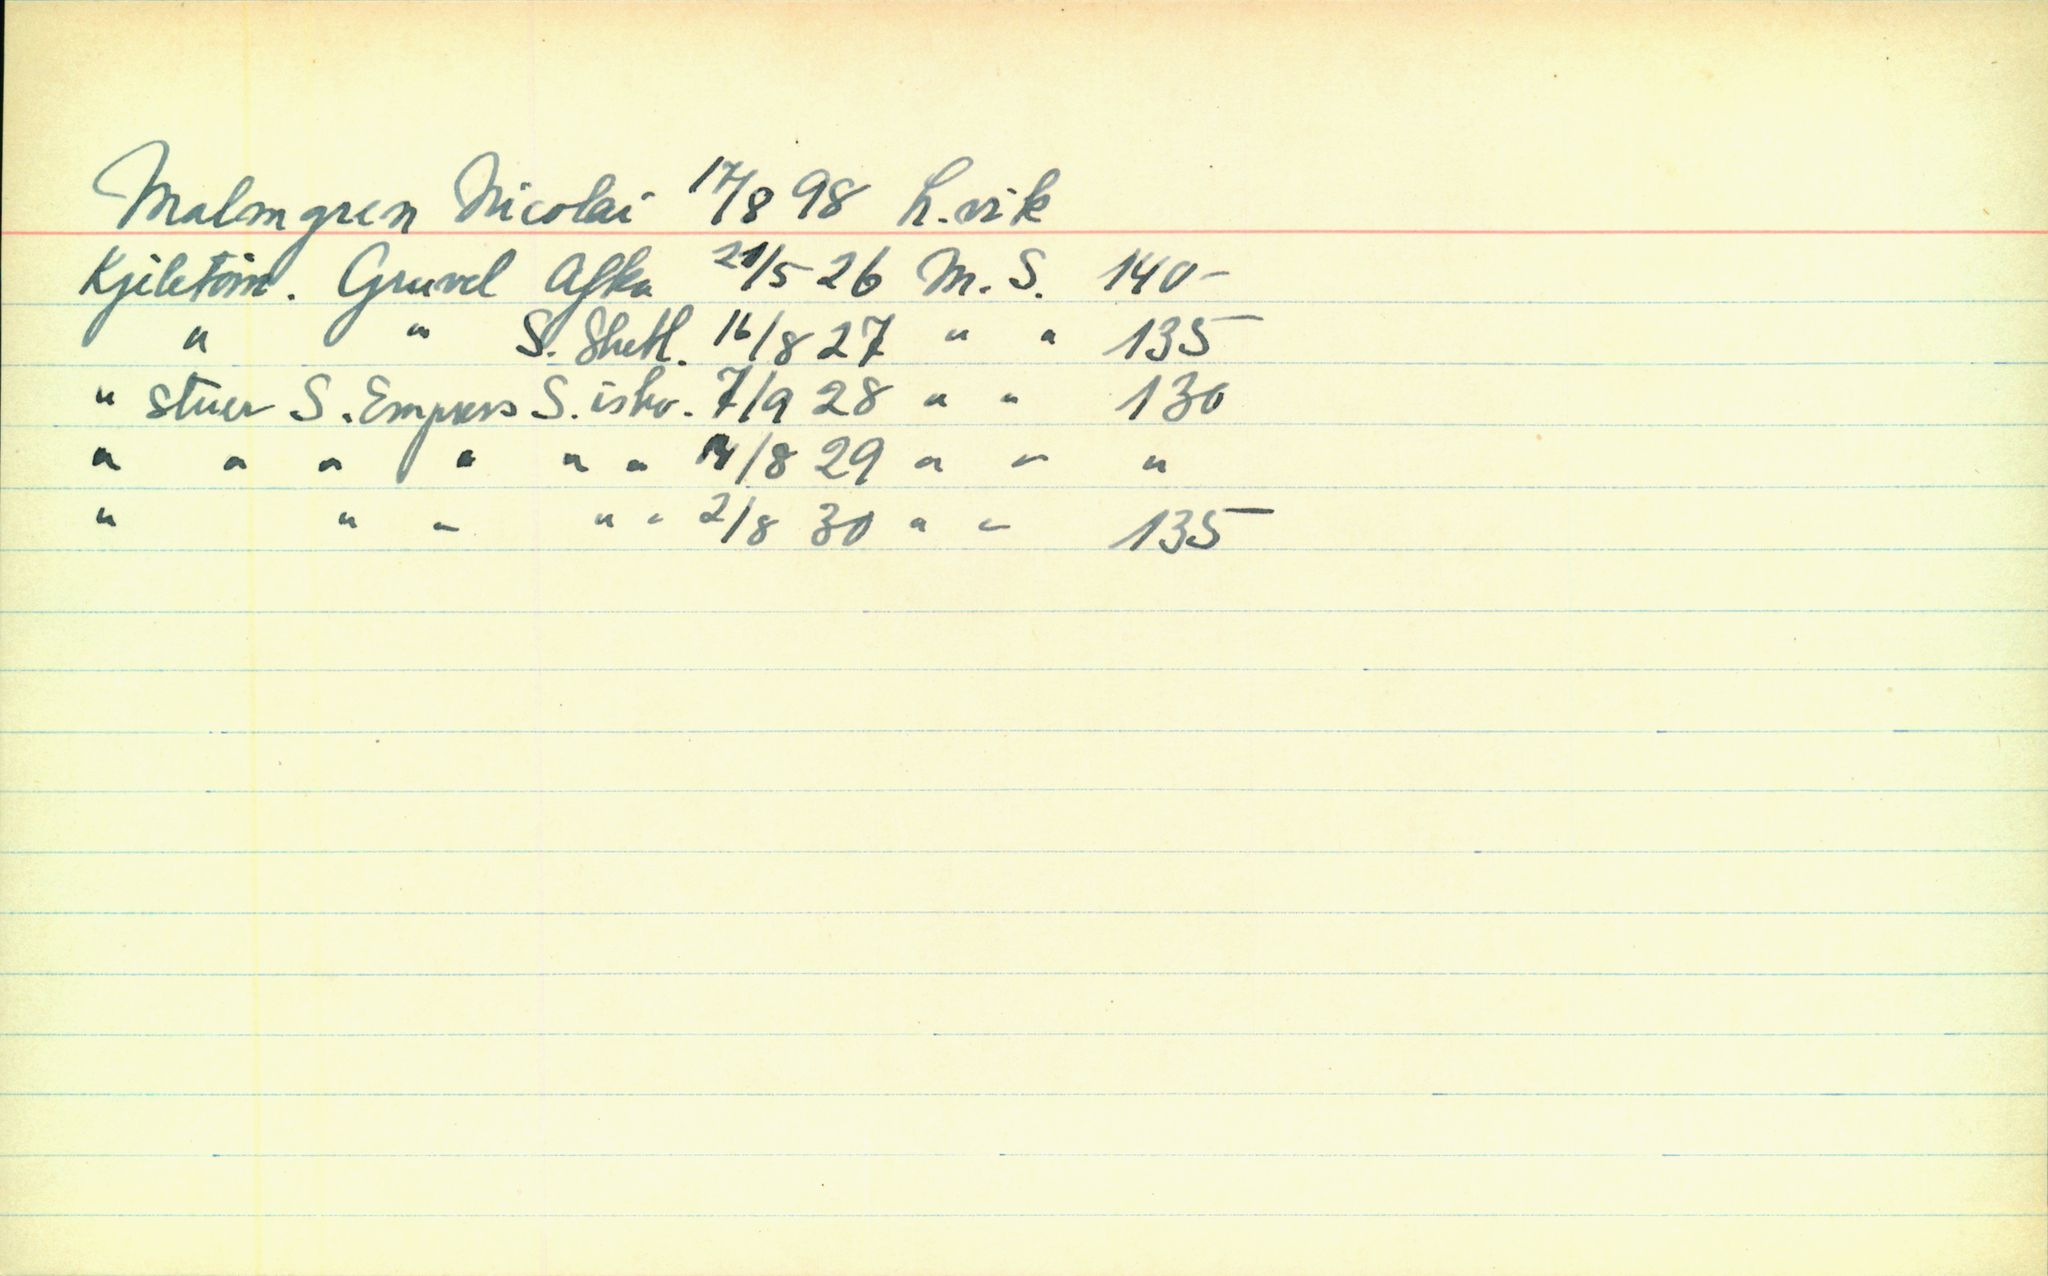 Malmgren Nicolai 17/8 98 L.vik
Kjeletöm. Gruvel Afka 21/5 26 M. S. 140-
" " S. Shetl. 16/8 27 " " 135
" stuer S. Empress S. ishv. 7/9 28 " " 130
" " " " " " 14/8 29 " " "
" " " " " 2/8 30 " " 135